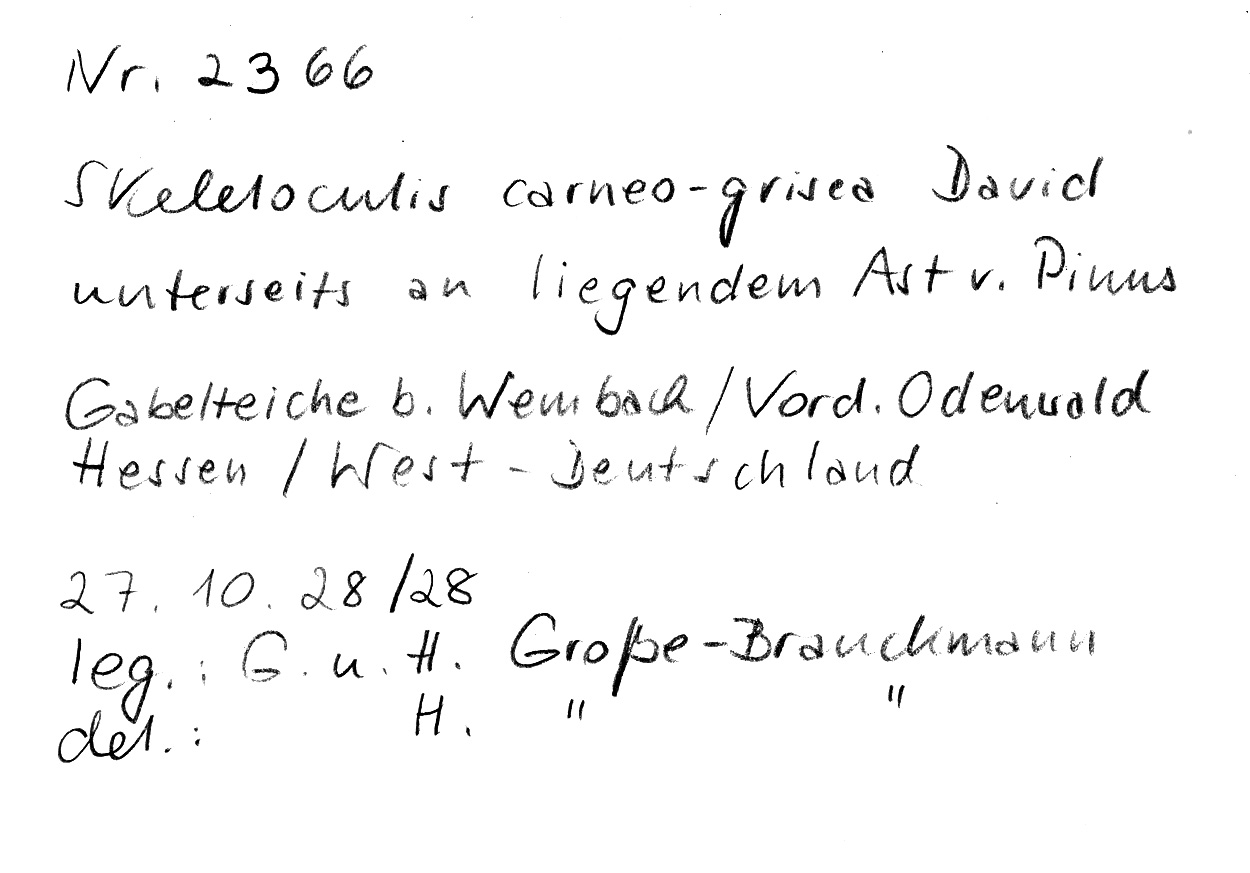 Nr. 2366
Skeletoculis carneo-grisea David
unterseits an liegendem Ast v. Pinus
Gabelteiche b. Wembach / Vord. Odenwald
Hessen / West - Deutschland
27. 10. 28/28
leg.: G. u. H. Große-Brauckmann
det.: H. " "